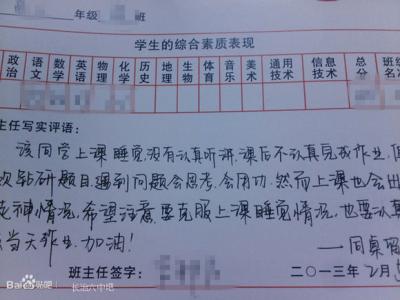 年级 班
学生的综合素质表现
政治 语文 数学 英语 物理 化学 历史 地理 生物 体育 音乐 美术 通用技术 信息技术 总分 班级名
主任写实评语:
该同学上课睡觉,没有认真听讲,课后不认真完成作业,但
欢钻研题目,遇到问题会思考,会用功,然而上课也会出
走神情况,希望注意要克服上课睡觉情况,也要认真
当天作业,加油!
——同桌
班主任签字:
二〇一三年 2月
Baidu贴吧 长治六中吧